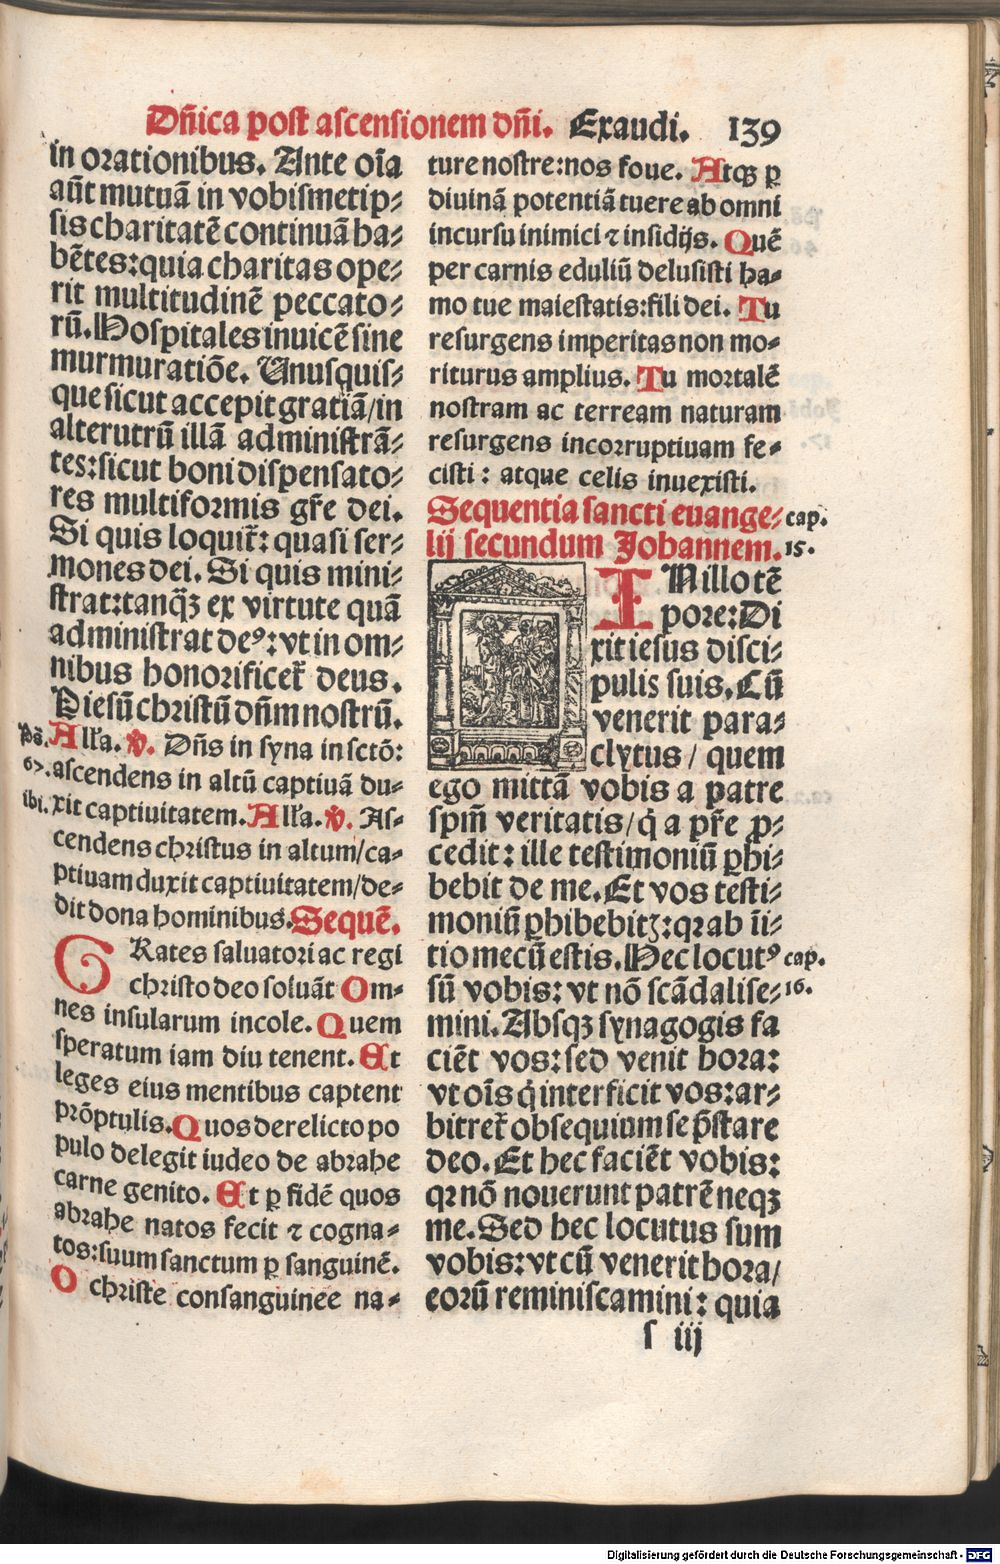 Dñica post ascensionem dñi. Exaudi. 139
in orationibus. Ante oĩa
aũt mutuã in vobismetip⸗
sis charitatẽ continuã ha⸗
bẽtes: quia charitas ope⸗
rit multitudinẽ peccato⸗
rũ. Hospitales inuicẽ sine
murmuratiõe. Unusquis⸗
que sicut accepit gratiã/in
alterutrũ illã administrã⸗
tes: sicut boni dispensato⸗
res multiformis gr̃e dei.
Si quis loquit᷑: quasi ser⸗
mones dei. Si quis mini⸗
strat: tanq̃ꝫ ex virtute quã
administrat deꝰ: vt in om⸗
nibus honorificet᷑ deus.
P iesũ christũ dñm nostrũ.
Ps̃. All'a. ℣. Dñs in syna in sctõ:
67. ascendens in altũ captiuã du⸗
ibi. xit captiuitatem. All'a. ℣. As⸗
cendens christus in altum/ca⸗
ptiuam duxit captiuitatem/de⸗
dit dona hominibus. Sequẽ.
GRates saluatori ac regi
christo deo soluãt Om⸗
nes insularum incole. Quem
speratum iam diu tenent. Et
leges eius mentibus captent
prõptulis. Quos derelicto po
pulo delegit iudeo de abrahe
carne genito. Et ꝑ fidẽ quos
abrahe natos fecit ⁊ cogna⸗
tos: suum sanctum ꝑ sanguinẽ.
O christe consanguinee na⸗
ture nostre: nos foue. Atqꝫ ꝑ
diuinã potentiã tuere ab omni
incursu inimici ⁊ insidijs. Quẽ
per carnis eduliũ delusisti ha⸗
mo tue maiestatis: fili dei. Tu
resurgens imperitas non mo⸗
riturus amplius. Tu mortalẽ
nostram ac terream naturam
resurgens incorruptiuam fe⸗
cisti: atque celis inuexisti.
Sequentia sancti euange⸗ cap.
lij secundum Johannem. 15.
IN illo tẽ
pore: Di
xit iesus disci⸗
pulis suis. Cũ
venerit para⸗
clytus / quem
ego mittã vobis a patre
spm̃ veritatis/q̇ a pr̃e ꝓ⸗
cedit: ille testimoniũ ꝑhi⸗
bebit de me. Et vos testi⸗
moniũ ꝑhibebitꝫ: qꝛ ab ĩi⸗
tio mecũ estis. Hec locutꝰ cap.
sũ vobis: vt nõ scãdalise⸗ 16.
mini. Absqꝫ synagogis fa
ciẽt vos: sed venit hora:
vt oĩs q̇ interficit vos: ar⸗
bitret᷑ obsequium se p̃stare
deo. Et hec faciẽt vobis:
qꝛ nõ nouerunt patrẽ neqꝫ
me. Sed hec locutus sum
vobis: vt cũ venerit hora/
eorũ reminiscamini: quia
s iij
Digitalisierung gefördert durch die Deutsche Forschungsgemeinschaft - DFG